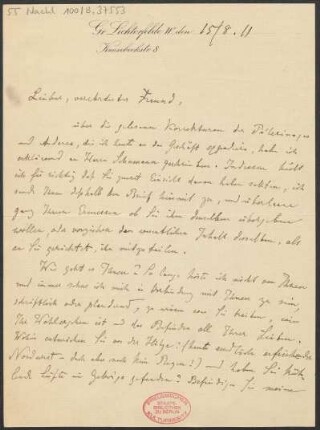 55 Nachl 100/B, 37553
Gr. Lichterfelde W. den 15/8. 11
Lieber, verehrter Freund,
über die gelesenen Korrekturen der Pilgerin
und Anderes, die ich heute an das Geschäft, habe ich
an Herrn geschrieben. Indessen hielt
ich für richtig daß Sie zuerst Einsicht davon haben sollten, ich
sende Ihnen deßhalb den Brief hiermit zu, und überlasse
ganz Ihrem Ermessen ob Sie ihn demselben übergeben
wollen oder vorziehen den Inhalt desselben, als
an Sie gerichtet, ihm mitzutheilen.
Wie geht es Ihnen? So lange hörte ich nicht von Ihnen
und immer sehne ich mich in Verbindung mit Ihnen zu sein,
schriftlich oder plaudernd, zu wissen wie Sie leben, wie
Ihr Wohlergehen ist und das Befinden all Ihrer Lieben.
Wohin entwichen Sie vor der Hitze? (heute endlich erfrischender
Nordwest – doch ohne Regen!) – und haben Sie kühlende
Lüfte im Gebirge gefunden? Befindigen Sie meine